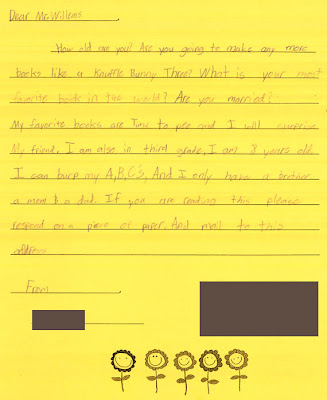 Dear Mr. Willems,
How old are you? Are you going to make any more
books like a Knuffle Bunny Three? What is your most
favorite book in the world? Are you married?
My favorite books are Time to pee and I will surprise
My friend. I am also in third grade. I am 8 years old.
I can burp my A,B,C's, And I only have a brother
a mom & a dad. If you are reading this please
respond on a piece of paper. And mail to this
address
From